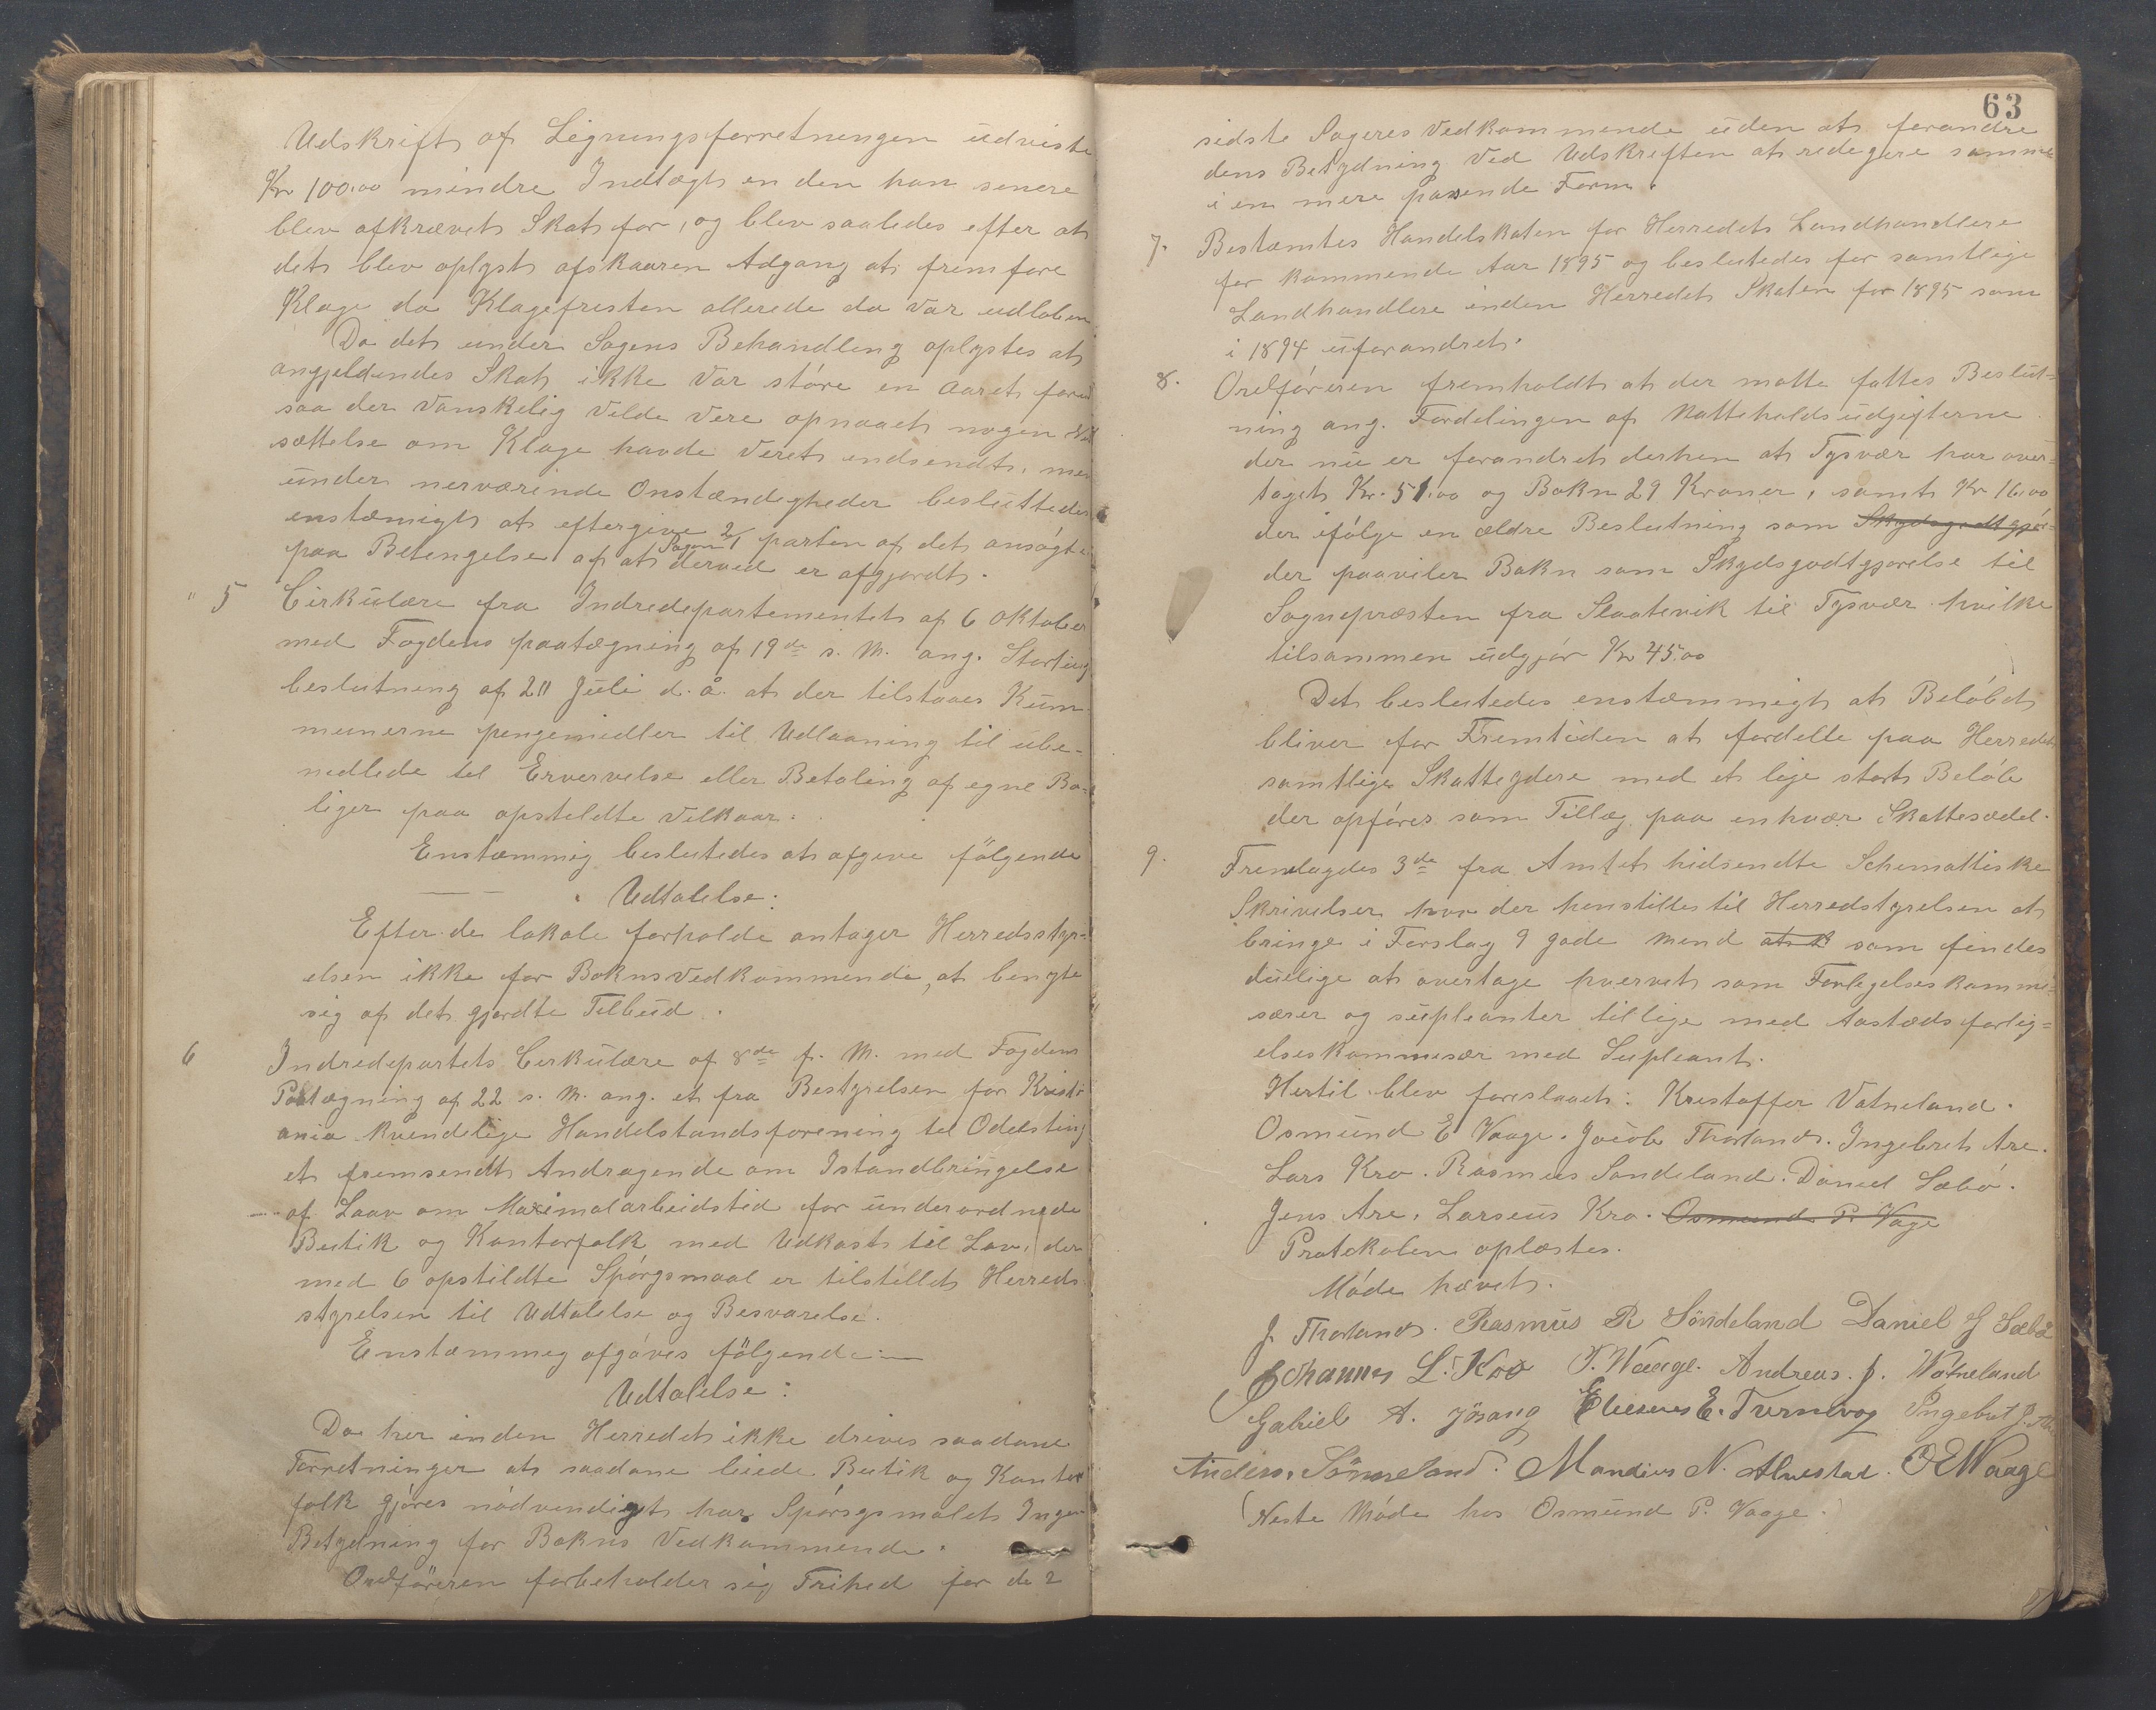 Udskrift af Ligningsforretningen udviste
Kr 100.00 mindre Indtægt en den han senere
blev afkrævet Skat for, og blev saaledes efter at
det blev oplyst afskaaren Adgang at fremføre
Klage da Klagefristen allerede da var udløben
Da det under Sagens Behandling oplystes at
angjeldendes Skat ikke var störe en aaret forud
saa der vanskelig vilde vere opnaaet nogen
sættelse om Klage havde veret indsendt, men
under nerværende Omstændigheder besluttedes
enstæmigt at eftergive 2/1 parten af det ansøgte
paa Betengelse af at Sagen derved er afgjordt.
" 5 Cirkulære fra Indredepartementet af 6 Oktober
med Fogdens paategning af 19de s. M. ang. Storting
beslutning af 20 Juli d. å. at der tilstaaes Kum-
munerne pengemidler til Udlaaning til ube-
midlede til Ervervelse eller Betaling af egne Bo-
liger paa opsteldte Vilkaar.
Enstæmmig beslutedes at afgive fölgende
Udtalelse:
Efter de lokale forholde antager Herredsstyr-
elsen ikke for Bokns Vedkommende, at benyte
sig af det gjordte Tilbud.
6 Indredepartets Cirkulære af 8de f. M. med Fogdens
Paategning af 22 s. M. ang. et fra Bestyrelsen for Kristi
ania kvindelige Handelstandsforening til Odelsting
et fremsendt Andragende om Istandbringelse
af Laav om Maximalarbeidstid for underordnede
Butik og Kontorfolk med Udkast til Lov, der
med 6 opstildte Spørgsmaal er tilstillet Herreds
styrelsen til Udtalelse og Besvarelse.
Enstæmmig afgøves fölgende:
Udtalelse:
Da her inden Herredet ikke drives saadane
Forretninger at saadane leiede Butik og Kontor
folk gjøres nödvendigt har Spørsgsmalet Ingen
Betydning for Bokns Vedkommende.
Ordföreren forbeholder sig Frihed for de 2
63
sidste Sageres Vedkommende uden at forandre
dens Betydning ved Udskriften at redegere samme
i en mere passende Form.
7. Bestæmtes Handelskaten for Herredets Landhandlere
for kommende Aar 1895 og beslutedes for samtlige
Landhandlere inden Herredet Skaten for 1895 som
i 1894 uforandret.
8. Ordföreren fremholdt at der motte fattes Beslut-
ning ang. Fordelingen af Natteholdsudgifterne
der nu er forandret derhen at Tysvær har over-
taget Kr. 51.00 og Bokn 29 Kroner, samt Kr 16.00
der ifölge en ældre Beslutning som Skydsgodtgjör-
der paaviler Bokn som Skydsgodtgjørelse til
Sognepræsten fra Slaatevik til Tysvær hvilke
tilsammen udgjör Kr 45.00
Det beslutedes enstæmmigt at Belöbet
bliver for Fremtiden at fordelle paa Herredets
samtlige Skatteydere med et lige stort Belöb
der opföres som Tillæg paa enhvær Skattesædel.
9. Fremlagdes 3de fra Amtet hidsendte Schemattiske
Skrivelser hvor der henstilles til Herredstyrelsen at
bringe i Forslag 9 gode Mend som findes
duelige at overtage hvervet som Forlegelseskommi-
særer og supleanter tillige med Aastædsforlig-
elseskommisær med Supleant.
Hertil blev foreslaaet: Kristoffer Vatneland.
Osmund E Vaage. Jacob Thorland. Ingebret Are.
Lars Kro. Rasmus Sondeland. Daniel Sæbö.
Jens Are. Larseus Kro. Osmund P. Vage
Protokolen oplæstes.
Möde hævet.
J. Thorland. Rasmus R Söndeland Daniel J Sæbö
Johannes L. Kro T. Waage. Andreas. J. Watneland
Gabriel A. Jösang Elieseus E. Trernevog Ingebret J. Are
Anders. Sönneland. Mandius N. Alvestad. O E Waage
(Neste Möde hos Osmund P. Vaage.)